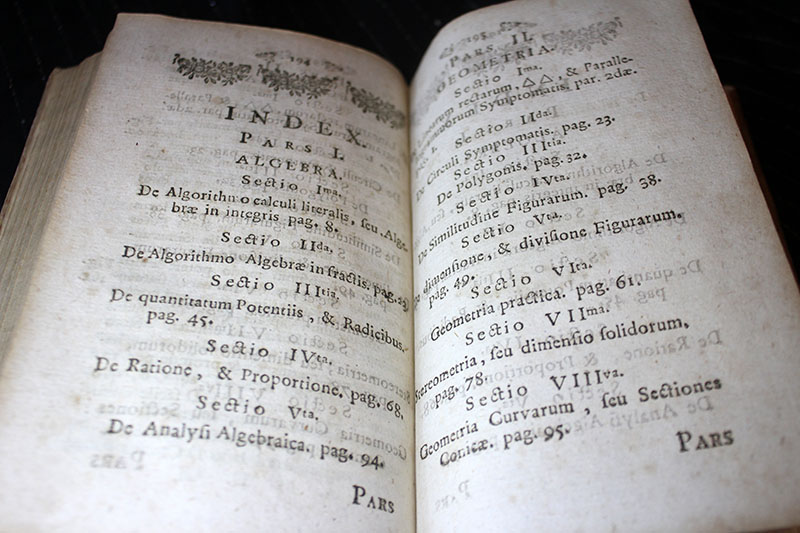 194
INDEX.
PARS I.
ALGEBRA.
Sectio Ima.
De Algorithmo calculi literalis, ſeu Alge-
bræ in integris pag. 8.
Sectio IIda.
De Algorithmo Algebræ in fractis. pag. 29
Sectio IIItia.
De quantitatum Potentiis, & Radicibus.
pag. 45.
Sectio IVta.
De Ratione, & Proportione. pag. 68.
Sectio Vta.
De Analyſi Algebraica. pag. 94.
PARS
195
PARS II.
GEOMETRIA.
Sectio Ima.
rectarum, △△, & Paralle-
Symptomatis. par. 2dæ.
Sectio IIda.
De Circuli Symptomatis. pag. 23.
Sectio IIItia.
De Polygonis. pag. 32.
Sectio IVta.
De Similitudine Figurarum. pag. 38.
Sectio Vta.
dimenſione, & diviſione Figurarum.
pag. 49.
Sectio VIta.
Geometria practica. pag. 61.
Sectio VIIma.
Stereometria, ſeu dimenſio ſolidorum,
pag. 78.
Sectio VIIIva.
Geometria Curvarum, ſeu Sectiones
Conicæ. pag. 95.
PARS